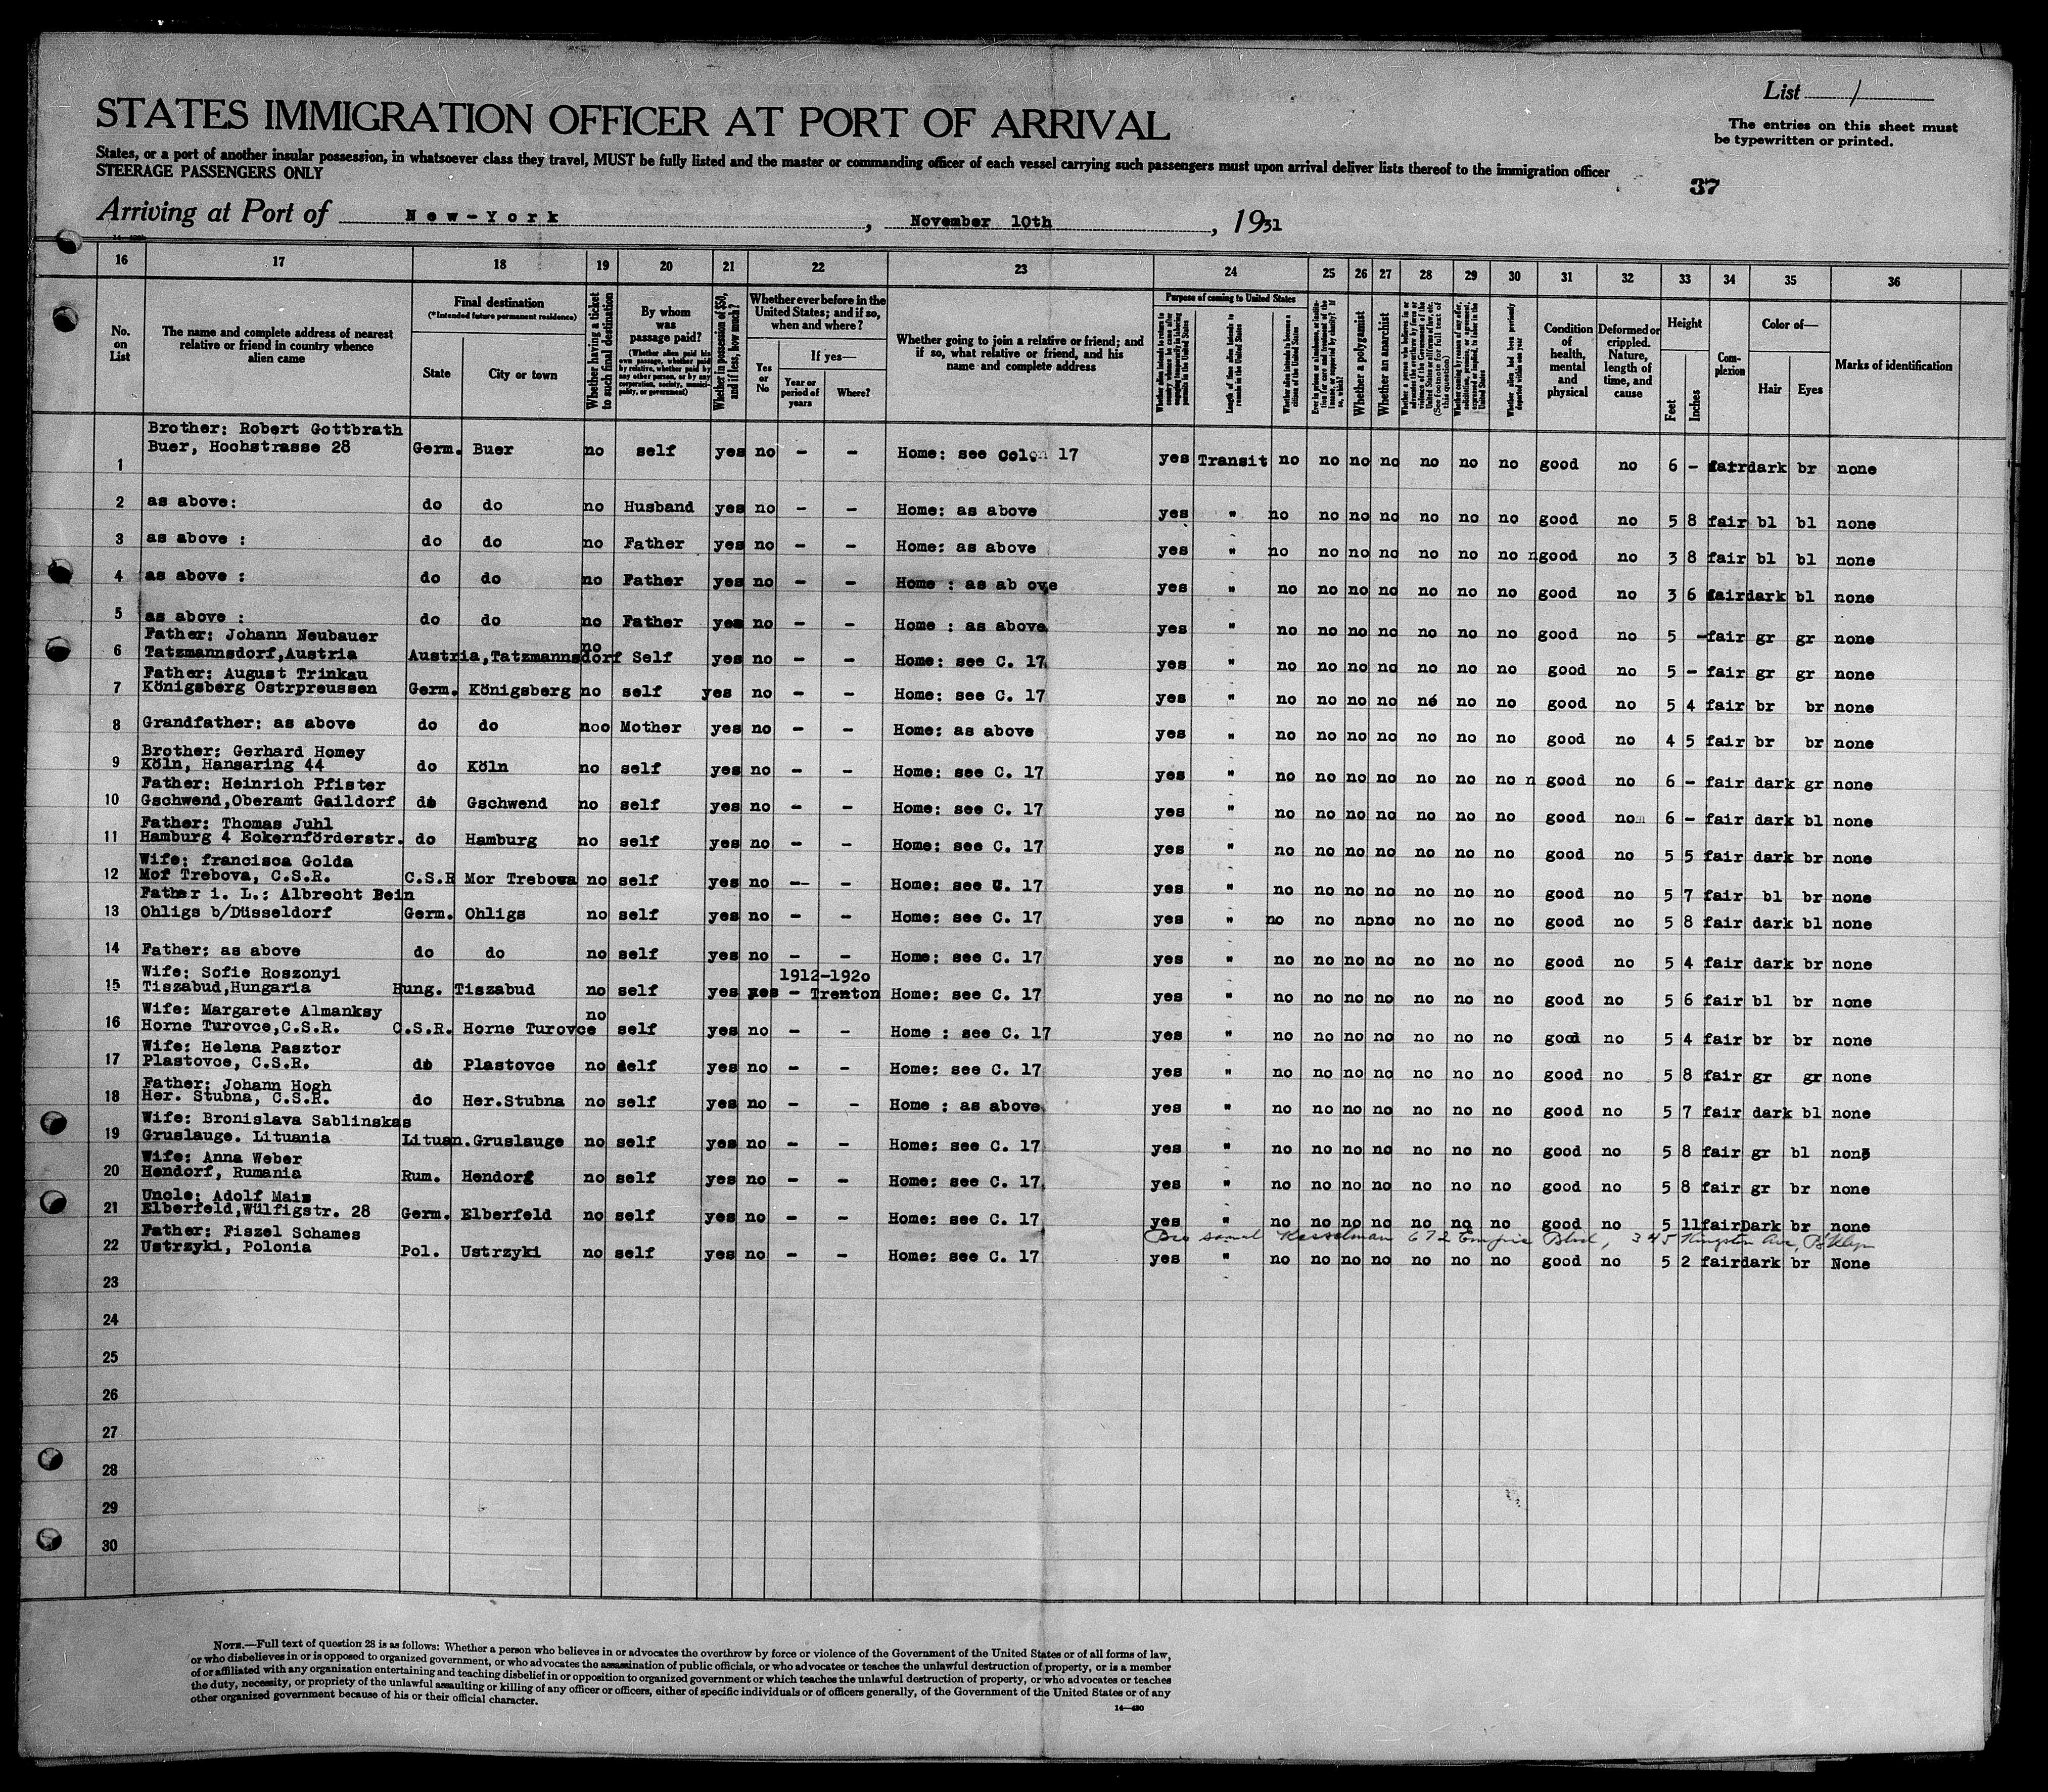 List 1
STATES IMMIGRATION OFFICER AT PORT OF ARRIVAL
The entries on this sheet must
be typewritten or printed.
States, or a port of another insular possession, in whatsoever class they travel, MUST be fully listed and the master or commanding officer of each vessel carrying such passengers must upon arrival deliver lists thereof to the immigration officer
STEERAGE PASSENGERS ONLY
37
Arriving at Port of New-York, November 10th, 1931
16 17 18 19 20 21 22 23 24 25 26 27 28 29 30 31 32 33 34 35 36
No. on List
The name and complete address of nearest relative or friend in country whence alien came
Final destination
(*Intended future permanent residence)
State
City or town
Whether having a ticket to such final destination
By whom was passage paid?
(Whether alien paid his own passage, whether paid by relative, whether paid by any other person, or by any corporation, society, municipality, or government)
Whether in possession of $50, and if less, how much?
Whether ever before in the United States; and if so, when and where?
Yes or No
If yes—
Year or period of years
Where?
Whether going to join a relative or friend; and if so, what relative or friend, and his name and complete address
Purpose of coming to United States
Whether alien intends to return to country whence he came after engaging temporarily in laboring pursuits in the United States
Length of time alien intends to remain in the United States
Whether alien intends to become a citizen of the United States
Ever in prison or almshouse, or institution for care and treatment of the insane, or supported by charity? If so, which?
Whether a polygamist
Whether an anarchist
Whether a person who believes in or advocates the overthrow by force or violence of the Government of the United States or all forms of law, etc. (See footnote for full text of this question)
Whether coming by reason of any offer, solicitation, promise, or agreement, expressed or implied, to labor in the United States
Whether alien had been previously deported within one year
Condition of health, mental and physical
Deformed or crippled. Nature, length of time, and cause
Height
Feet
Inches
Complexion
Color of—
Hair
Eyes
Marks of identification
Brother: Robert Gottbrath
1 Buer, Hochstrasse 28 Germ. Buer no self yes no - - Home: see Colon 17 yes Transit no no no no no no no good no 6 - fair dark br none
2 as above: do do no Husband yes no - - Home: as above yes " no no no no no no no good no 5 8 fair bl bl none
3 as above : do do no Father yes no - - Home: as above yes " no no no no no no no good no 3 8 fair bl bl none
4 as above : do do no Father yes no - - Home : as ab ove yes " no no no no no no no good no 3 6 fair dark bl none
5 as above : do do no Father yes no - - Home : as above yes " no no no no no no no good no 5 - fair gr gr none
Father: Johann Neubauer
6 Tatzmannsdorf,Austria Austria,Tatzmannsdorf no Self yes no - - Home: see C. 17 yes " no no no no no no no good no 5 - fair gr gr none
Father: August Trinkau
7 Königsberg Ostrpreussen Germ. Königsberg no self yes no - - Home: see C. 17 yes " no no no no no no no good no 5 4 fair br br none
8 Grandfather: as above do do noo Mother yes no - - Home: as above yes " no no no no no no no good no 4 5 fair br br none
Brother: Gerhard Homey
9 Köln, Hansaring 44 do Köln no self yes no - - Home: see C. 17 yes " no no no no no no no n good no 6 - fair dark gr none
Father: Heinrich Pfister
10 Gschwend,Oberamt Gaildorf do Gschwend no self yes no - - Home: see C. 17 yes " no no no no no no no good no 6 - fair dark bl none
Father: Thomas Juhl
11 Hamburg 4 Eckernförderstr. do Hamburg no self yes no - - Home: see C. 17 yes " no no no no no no no good no 5 5 fair dark br none
Wife: francisca Golda
12 Mor Trebova, C.S.R. C.S.R Mor Trebova no self yes no -- - Home: see C. 17 yes " no no no no no no no good no 5 7 fair bl br none
Father i. L.: Albrecht Bein
13 Ohligs b/Düsseldorf Germ. Ohligs no self yes no - - Home: see C. 17 yes " no no no no no no no good no 5 8 fair dark bl none
14 Father: as above do do no self yes no - - Home: see C. 17 yes " no no no no no no no good no 5 4 fair dark br none
Wife: Sofie Roszonyi 1912-1920
15 Tiszabud,Hungaria Hung. Tiszabud no self yes yes - Trenton Home: see C. 17 yes " no no no no no no no good no 5 6 fair bl br none
Wife: Margarete Almanksy
16 Horne Turovce,C.S.R. C.S.R. Horne Turovce no self yes no - - Home : see C. 17 yes " no no no no no no no good no 5 4 fair br br none
Wife: Helena Pasztor
17 Plastovce, C.S.R. do Plastovce no self yes no - - Home: see C. 17 yes " no no no no no no no good no 5 8 fair gr gr none
Father: Johann Hogh
18 Her. Stubna, C.S.R. do Her.Stubna no self yes no - - Home : as above yes " no no no no no no no good no 5 7 fair dark bl none
Wife: Bronislava Sablinskas
19 Gruslauge. Lituania Lituan.Gruslauge no self yes no - - Home: see C. 17 yes " no no no no no no no good no 5 8 fair gr bl none
Wife: Anna Weber
20 Hendorf, Rumania Rum. Hendorf no self yes no - - Home: see C. 17 yes " no no no no no no no good no 5 8 fair gr br none
Uncle: Adolf Mais
21 Elberfeld,Wülfigstr. 28 Germ. Elberfeld no self yes no - - Home: see C. 17 yes " no no no no no no no good no 5 11 fair Dark br none
Father: Fiszel Schames Bro Kesselman 672 Empire Blvd, 345 Kingston Ave, B'klyn
22 Ustrzyki, Polonia Pol. Ustrzyki no self yes no - - Home: see C. 17 yes " no no no no no no no good no 5 2 fair dark br None
23
24
25
26
27
28
29
30
NOTE.—Full text of question 28 is as follows: Whether a person who believes in or advocates the overthrow by force or violence of the Government of the United States or of all forms of law,
or who disbelieves in or is opposed to organized government, or who advocates the assassination of public officials, or who advocates or teaches the unlawful destruction of property, or is a member
of or affiliated with any organization entertaining and teaching disbelief in or opposition to organized government or which teaches the unlawful destruction of property, or who advocates or teaches
the duty, necessity, or propriety of the unlawful assaulting or killing of any officer or officers, either of specific individuals or of officers generally, of the Government of the United States or of any
other organized government because of his or their official character.
14—430